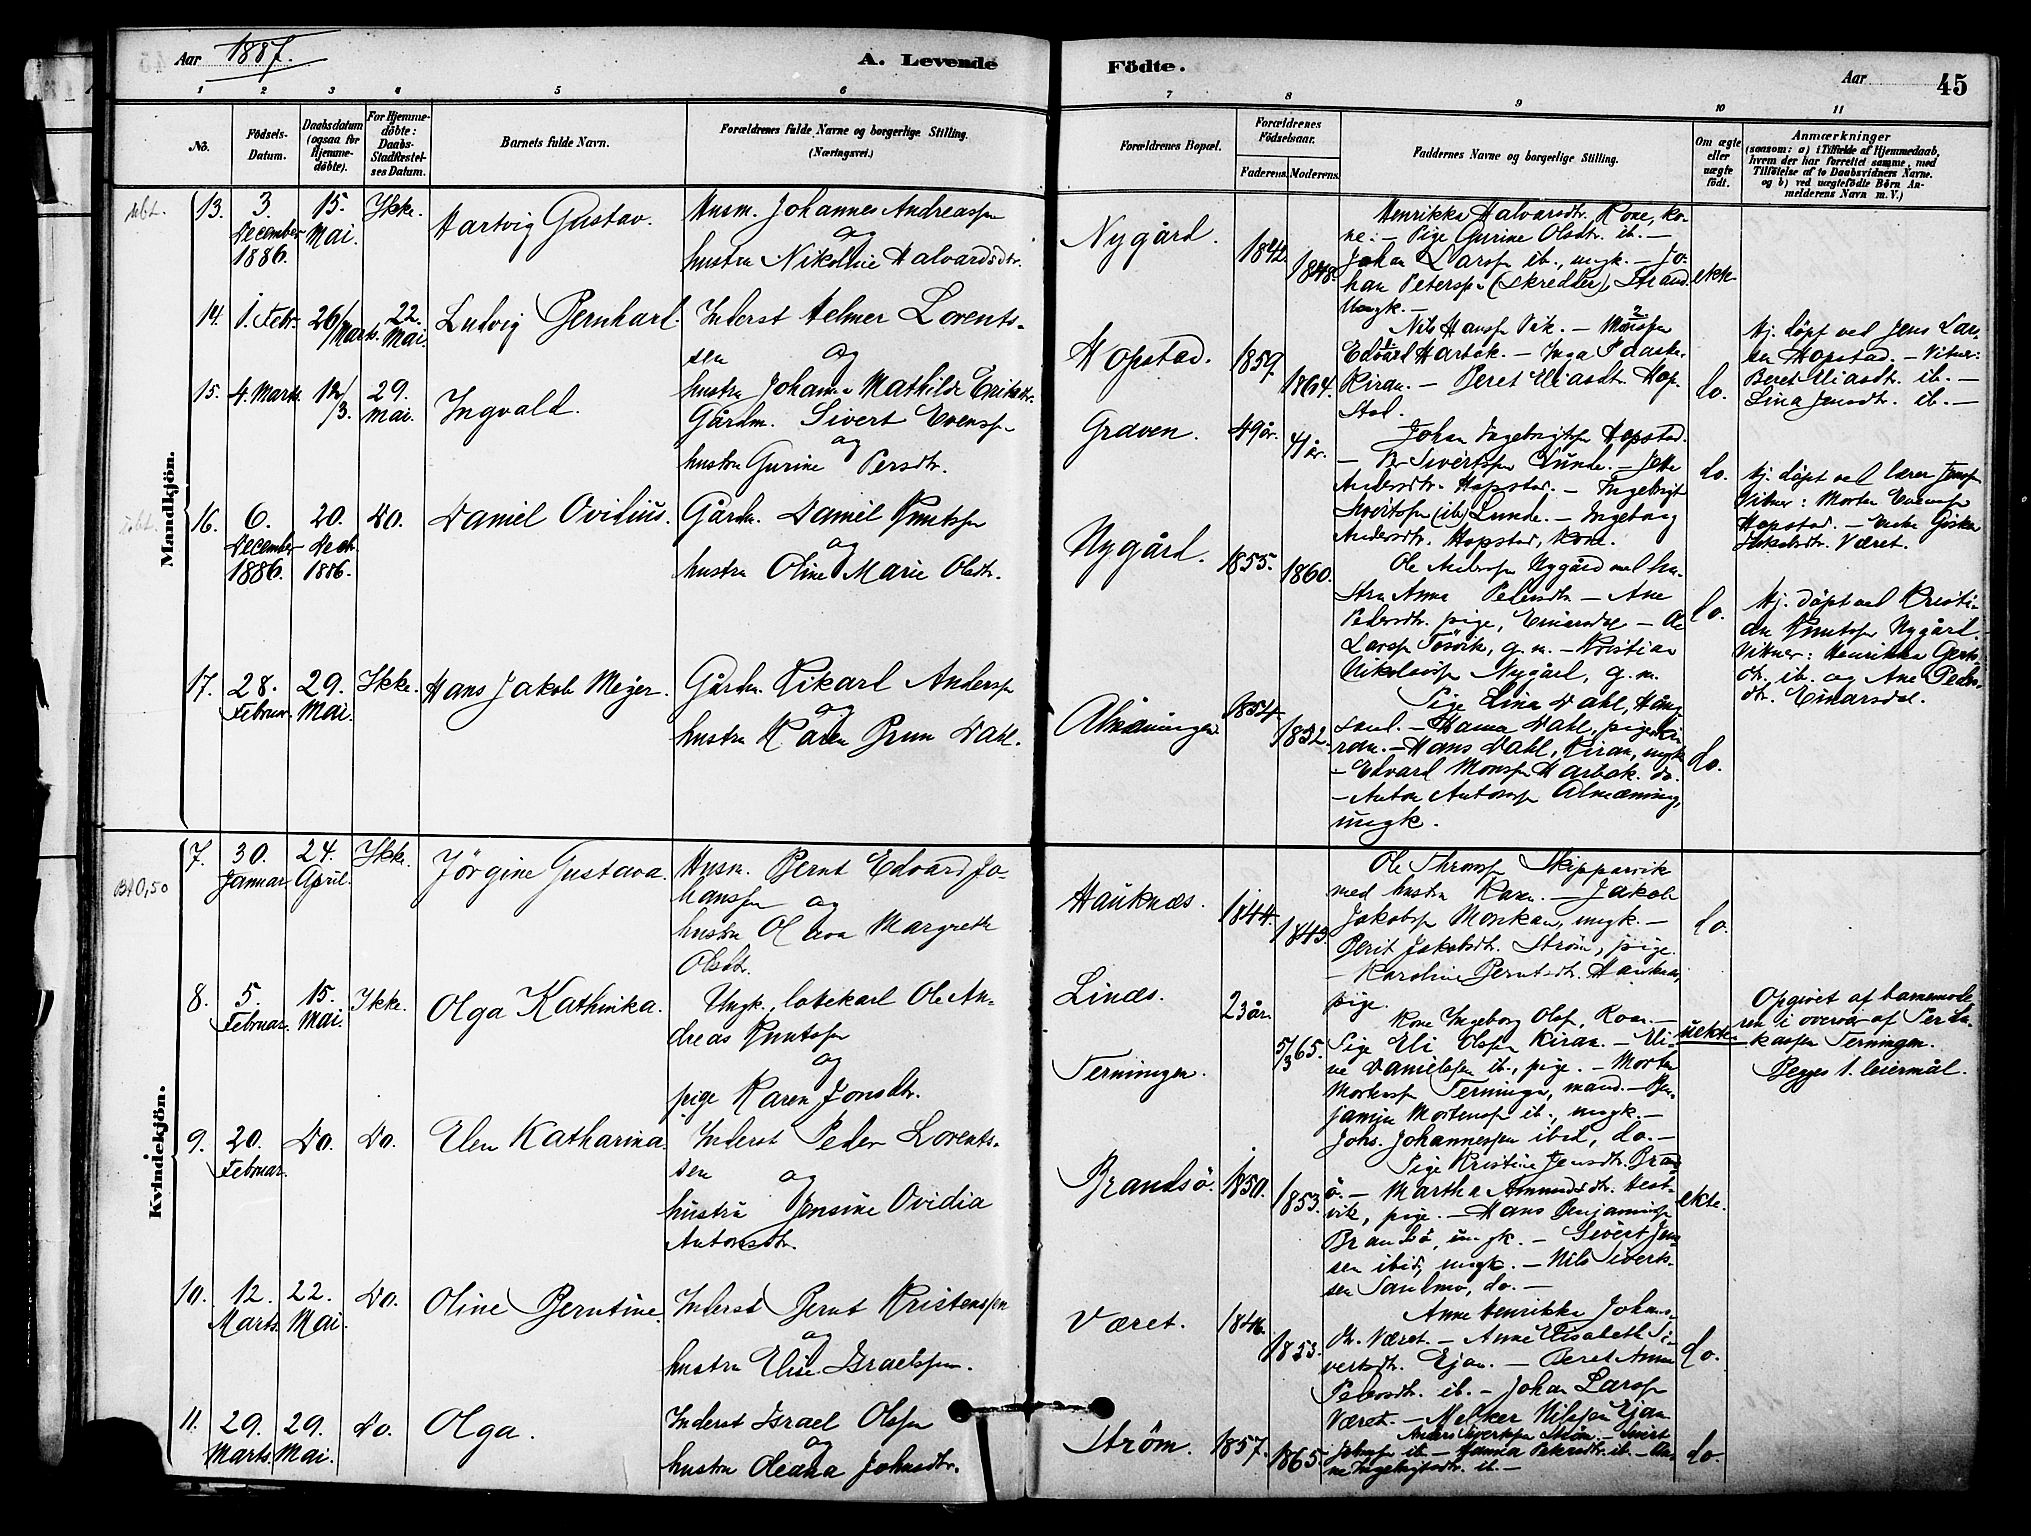 Aar 1887.
A. Levende
Födte.
Aar
45
1 2 3 4 5 6 7 8 9 10 11
No.
Födsels-
Datum.
Daabsdatum
(ogsaa for
Hjemme-
döbte).
For Hjemme-
döbte:
Daabs-
Stadfæstel-
ses Datum.
Barnets fulde Navn.
Forældrenes fulde Navne og borgerlige Stilling.
(Næringsvei.)
Forældrenes Bopæl.
Forældrenes
Födselsaar.
Faderens. Moderens.
Faddernes Navne og borgerlige Stilling.
Om ægte
eller
uægte
födt.
Anmærkninger
(saasom: a) i Tilfælde af Hjemmedaab,
hvem der har forrettet samme, med
Tilföielse af to Daabsvidners Navne.
og b) ved uægtefödte Börn An-
melderens Navn m. V.)
Mandkjön.
13.
3.
December
1886.
15.
Mai.
Ikke.
Hartvig Gustav.
Husm. Johannes Andreassen
og
hustru Nikoline Halvardsdtr.
Nygård.
1842.
1848.
Henrikka Halvarsdtr. Kone, ko-
ne. — Pige Gurine Olsdtr. ib. —
Johan Larssen ib., ungk. — Jo-
han Peterssen (Skredder), Strand
Ungk. —
ekte.
14.
1. Febr.
26/Marts.
22.
Mai.
Ludvig Bernhard.
Inderst Helmer Lorents-
sen og
hustru Johanna Mathilde Eriksdtr.
Hopstad.
1859.
1864.
Nils Hanssen Vik. — Monssen
Edvard Harbak. — Inga Paaske
Kiran. — Beret Eliasdtr. Hop-
stad.
do.
Hj. döpt ved Jens Lar-
sen Hopstad. — Vitner:
Beret Eliasdtr. ib. —
Lina Jensdtr. ib. —
15.
4. Marts.
12/
3.
29.
Mai.
Ingvald.
Gårdm. Sivert Evenssen
og
hustru Gurine Persdtr.
Graven.
49 år.
41 år.
Johan Ingebrigtsen Hopstad.
— Per Sivertssen Lunde. — Jette
Andersdtr. Hopstad. — Ingebrigt
Sivertssen (ib) Lunde. — Ingeborg
Andersdtr. Hopstad, kone.
do.
Hj. döpt ved lærer Jenssen
Vitner: Morten Evenssen
Hopstad. —
Jakobsdtr. Været.
16.
6.
December
1886.
20.
Decb.
1886.
Do.
Daniel Ovidius.
Gårdm. Daniel Knutssen
og
hustru Oline Marie Olsdtr.
Nygård.
1855.
1860.
Ole Anderssen Nygård med hu-
stru Anna Pedersdtr. — Ane
Pedersdtr. pige, Einarsdal — Ole
Larssen Tösvik, g.m. — Kristian
Nikolaissen Nygård, g.m.
do.
Hj. döpt ved Kristi-
an Knutssen Nygård.
Vitner: Henrikka Gjerts-
dtr. ib. og Ane Peders-
dtr. Einarsdal.
17.
28.
Februar.
29.
Mai.
Ikke.
Hans Jakob Meyer.
Gårdm. Rikard Anderssen
og
hustru Karen Brun Dahl.
Almenningen.
1854.
1852.
Pige Lina Dahl, Haug-
sand. — Hanna Dahl, pige, Ki-
ran. — Hans Dahl, Kiran, ungk.
— Edvard Monssen Harbak. do.
— Anton Antonssen Almenning,
ungk.
do.
Kvindekjön.
B10,50
7.
30.
Januar.
24.
April.
Ikke.
Jörgine Gustava.
Husm. Bernt Edvard Jo-
hanssen og
hustru Olava Margrethe
Olsdtr.
Hauknæs.
1844.
1843.
Ole Thronssen Skipparvik
med hustru Karen. — Jakob
Jakobssen Monkan, ungk. —
Berit Jakobsdtr. Ström, pige.
— Karoline Berntsdtr. Hauknæs,
pige.
do.
8.
5.
Februar.
15.
Mai.
Ikke.
Olga Kathinka.
Ungk., losekarl Ole An-
dreas Knutssen
og
pige Karen Jonsdtr.
Linæs.
Terningen.
23 år.
5/3 65.
Kone Ingeborg Olsen, Roan. —
Pige Eli Olssen Kiran. — Eli-
ne Danielssen ib., pige. — Morten
Mortenssen Terningen, mand. — Ben-
jamin Mortenssen ib., ungk. —
Johs. Johannessen ibid, do. —
uekte.
Opgivet af barnemode-
ren i overvær af Per Lu-
kassen Terningen.
Begges 1. leiermål.
9.
20.
Februar.
Do.
Do.
Elen Katharina.
Inderst Peder Lorents-
sen og
hustru Jensine Ovidia
Antonsdtr.
Brandsö.
1850.
1853.
Pige Kristine Jensdtr. Brands-
ö. — Martha Amundsdtr. Hest-
vik, pige. — Hans Benjaminssen
Brandsö, ungk. — Sivert Jens-
sen ibid, ungk. — Nils Siverts-
sen Saulmo, do. —
ekte.
10.
12.
Marts.
22.
Mai.
Do.
Oline Berntine.
Inderst Bernt Kristenssen
og
hustru Elise Israelssen.
Været.
1846.
1853.
Anne Henrikke Johans-
dtr. Været. — Anne Elisabeth Si-
vertsdtr. Ejan. — Beret Anna
Pedersdtr. ib. — Johan Larssen
Været. — Melker Nilssen Ejan
do.
11.
29.
Marts.
29.
Mai.
Do.
Olga.
Inderst Israel Olssen
og
hustru Oleana Johnsdtr.
Ström.
1857.
1865.
Anders Sivertssen Ström. — Sivert
Johnssen ib. — Hanna Pedersdtr. ib. — An-
ne Ingebrigtsdtr. ib. —
do.